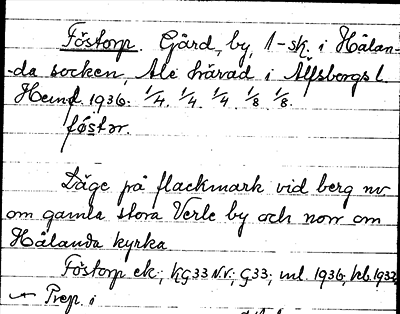 Föstorp. Gård, by, 1-sk. i Hålan-
-da socken, Ale härad i Älfsborgs l.
Hemf. 1936. 1/4. 1/4. 1/4. 1/8. 1/8.
föstər.
Läge på flackmark vid berg nv
om gamla stora Verle by och norr om
Hålanda kyrka
Föstorp ek; KG33 NV; G33; ml. 1936, hb. 1932
Prep. i